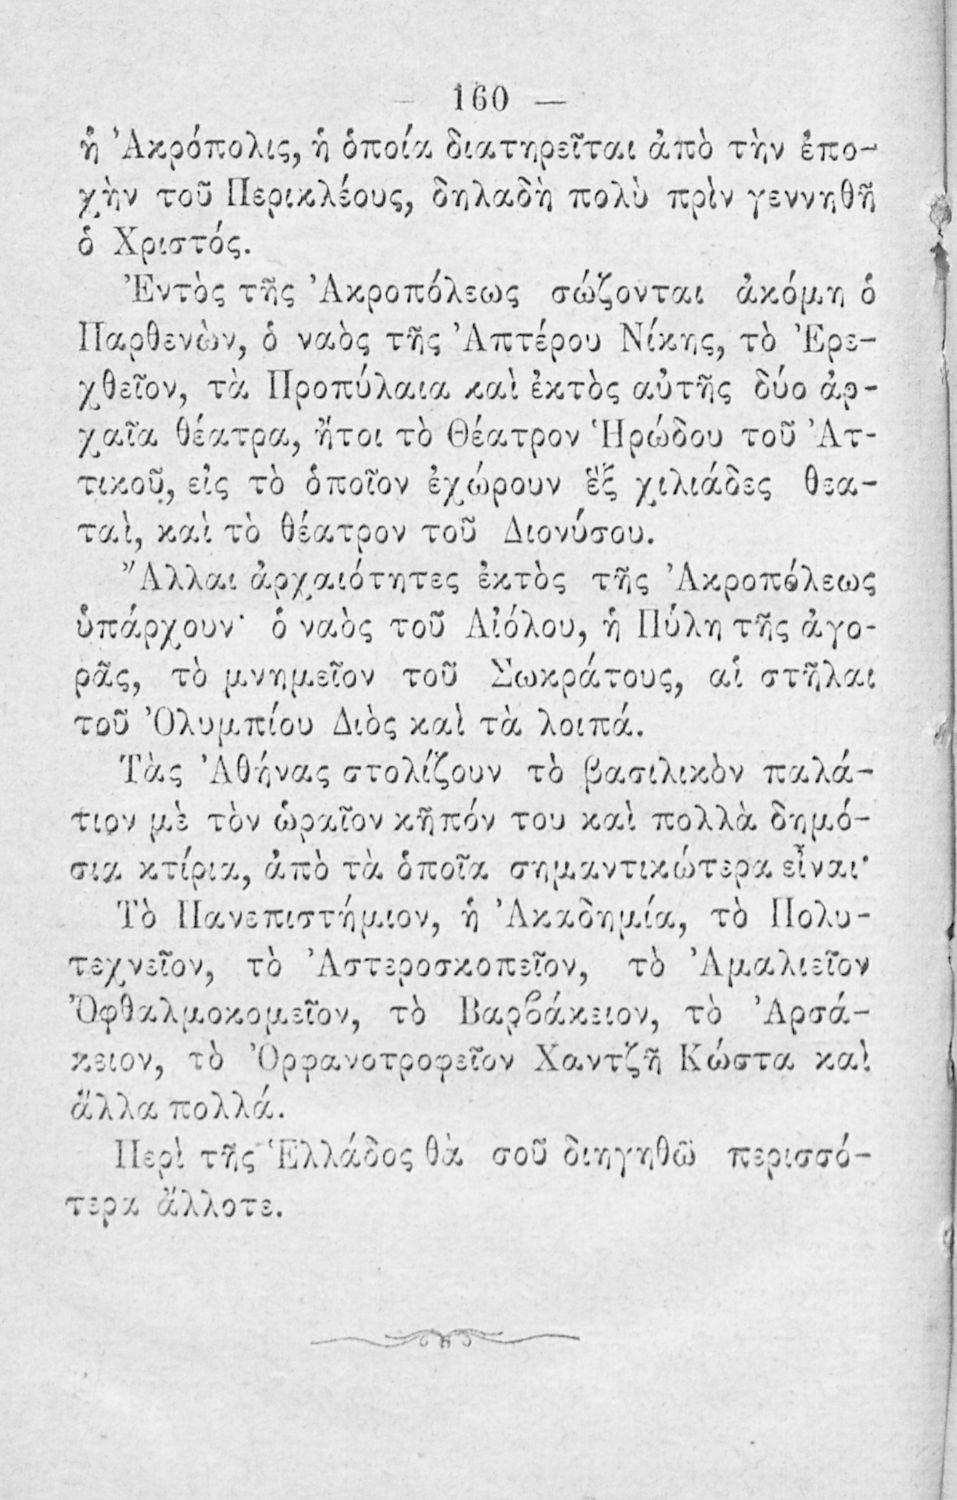 — 160 —
ἡ Ἀκρόπολις, ἡ ὁποία διατηρεῖται ἀπὸ τὴν ἐπο-
χὴν τοῦ Περικλέους, δηλαδὴ πολὺ πρὶν γεννηθῇ
ὁ Χριστός.
Ἐντὸς τῆς Ἀκροπόλεως σώζονται ἀκόμη ὁ
Παρθενὼν, ὁ ναὸς τῆς Ἀπτέρου Νίκης, τὸ Ἐρε-
χθεῖον, τὰ Προπύλαια καὶ ἐκτὸς αὐτῆς δύο ἀρ-
χαῖα θέατρα, ἤτοι τὸ Θέατρον Ἡρώδου τοῦ Ἀτ-
τικοῦ, εἰς τὸ ὁποῖον ἐχώρουν ἓξ χιλιάδες θεα-
ταὶ, καὶ τὸ θέατρον τοῦ Διονύσου.
Ἄλλαι ἀρχαιότητες ἐκτὸς τῆς Ἀκροπόλεως
ὑπάρχουν· ὁ ναὸς τοῦ Αἰόλου, ἡ Πύλη τῆς ἀγο-
ρᾶς, τὸ μνημεῖον τοῦ Σωκράτους, αἱ στῆλαι
τοῦ Ὀλυμπίου Διὸς καὶ τὰ λοιπά.
Τὰς Ἀθήνας στολίζουν τὸ βασιλικὸν παλά-
τιον μὲ τὸν ὡραῖον κῆπόν του καὶ πολλὰ δημό-
σια κτίρια, ἀπὸ τὰ ὁποῖα σημαντικώτερα εἶναι·
Τὸ Πανεπιστήμιον, ἡ Ἀκαδημία, τὸ Πολυ-
τεχνεῖον, τὸ Ἀστεροσκοπεῖον, τὸ Ἀμαλιεῖον
Ὀφθαλμοκομεῖον, τὸ Βαρβάκειον, τὸ Ἀρσά-
κειον, τὸ Ὀρφανοτροφεῖον Χαντζῆ Κώστα καὶ
ἄλλα πολλά.
Περὶ τῆς Ἑλλάδος θὰ σοῦ διηγηθῶ περισσό-
τερα ἄλλοτε.